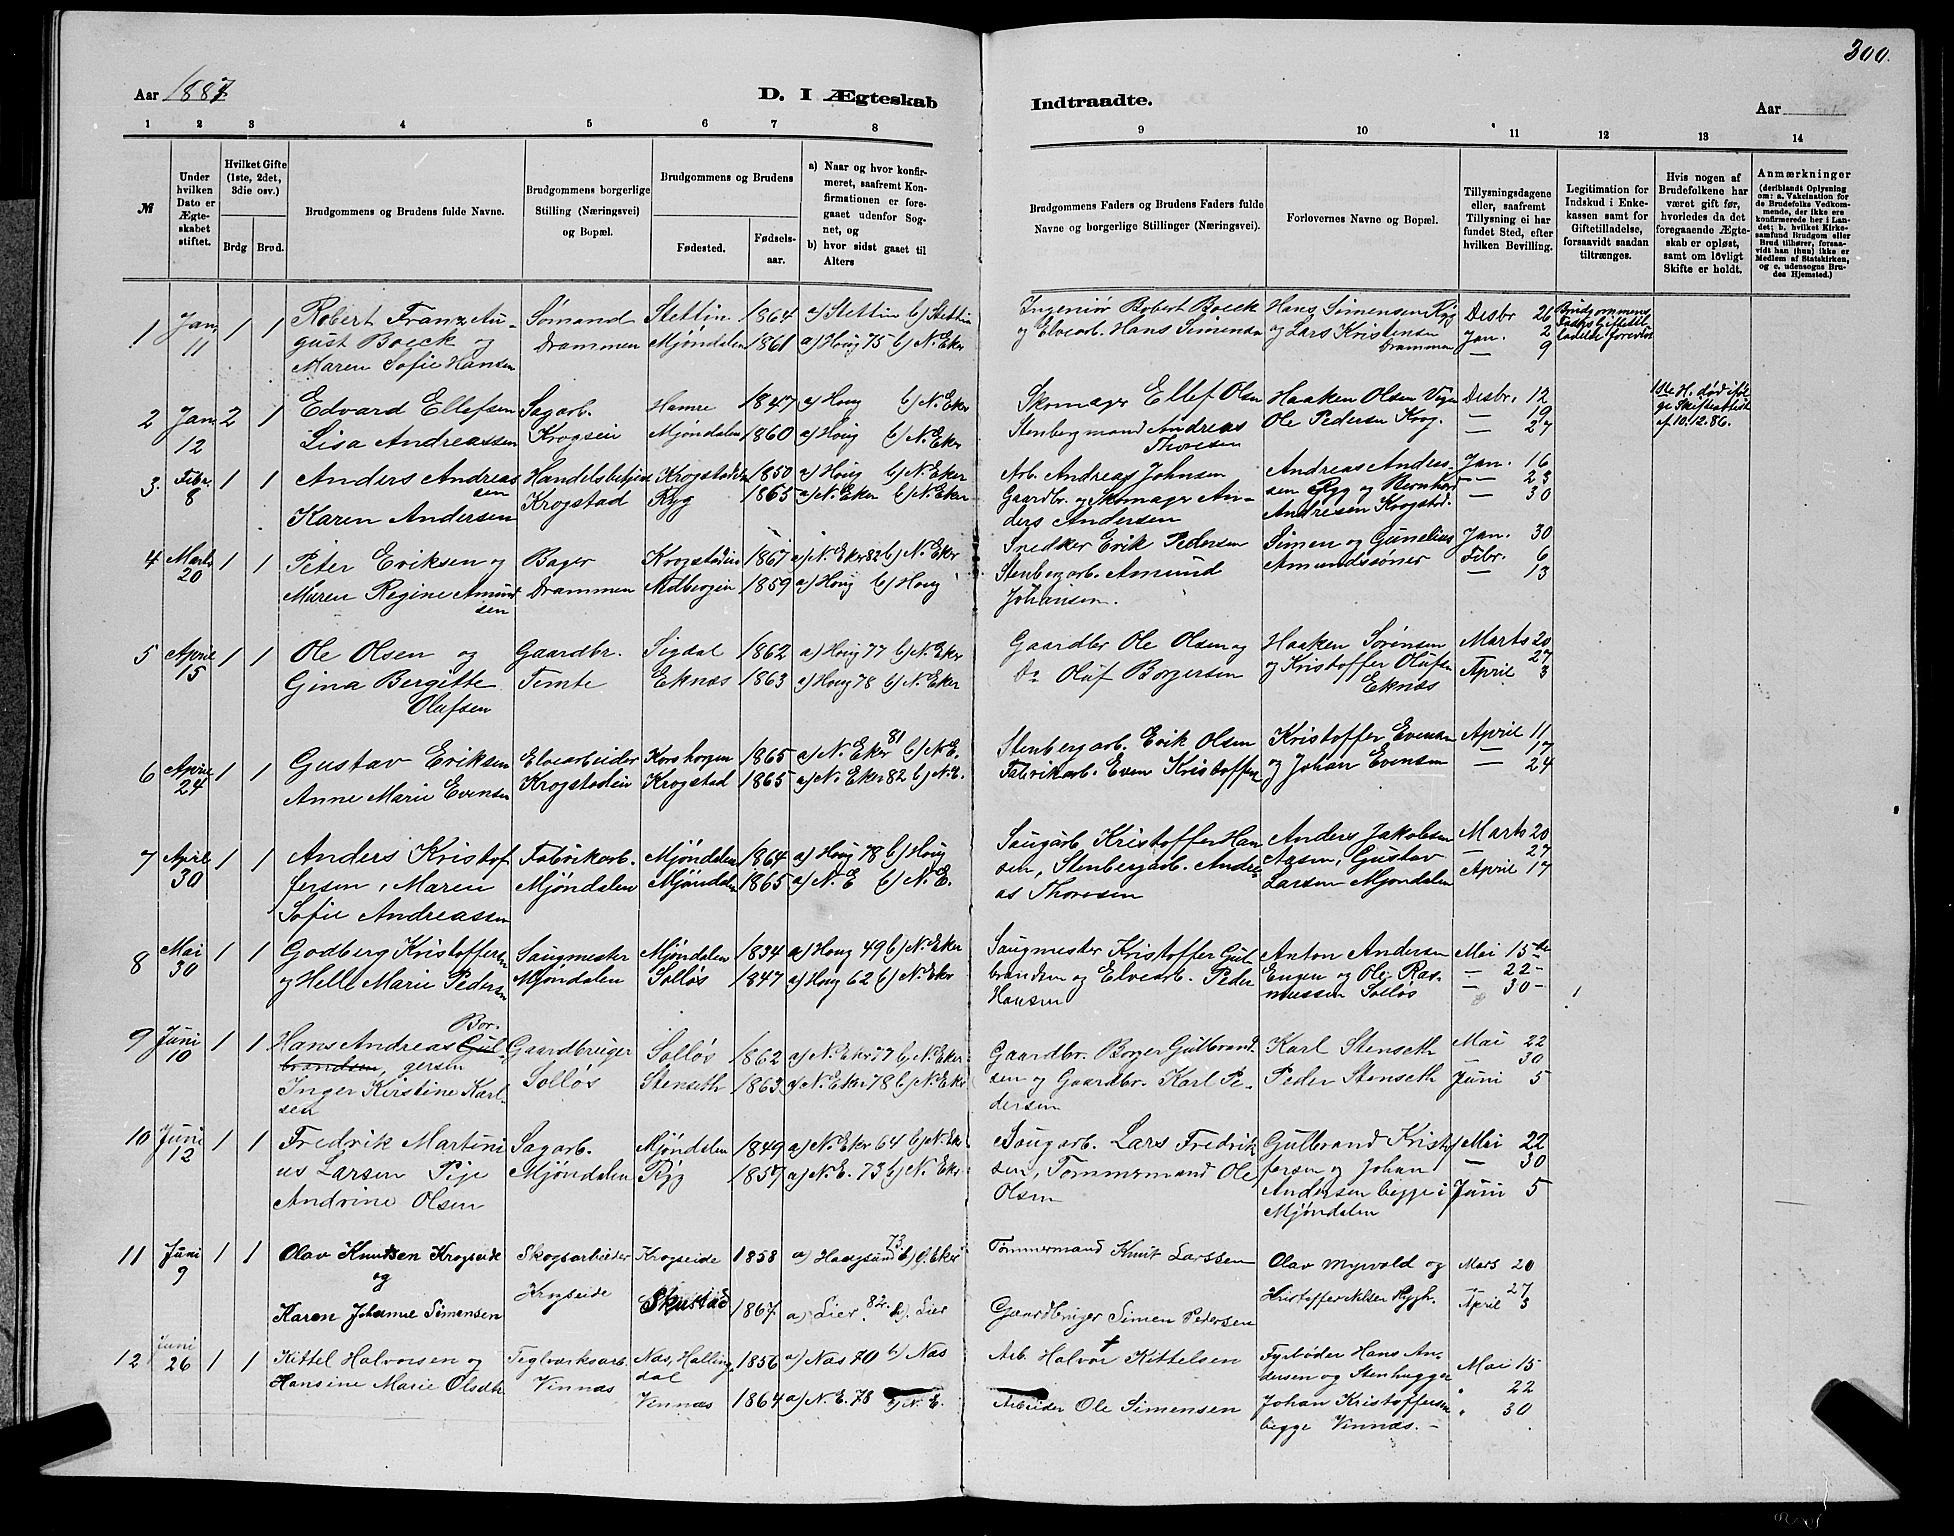 300.
Aar 1887
D. I Ægteskab
Indtraadte.
Aar
1 2 3 4 5 6 7 8 9 10 11 12 13 14
№
Under hvilken Dato er Ægteskabet stiftet.
Hvilket Gifte (1ste, 2det, 3die osv.)
Brdg Brud.
Brudgommens og Brudens fulde Navne.
Brudgommens borgerlige Stilling (Næringsvei) og Bopæl.
Brudgommens og Brudens
Fødested.
Fødselsaar.
a) Naar og hvor konfirmeret, saafremt Konfirmationen er foregaaet udenfor Sognet, og
b) hvor sidst gaaet til Alters
Brudgommens Faders og Brudens Faders fulde Navne og borgerlige Stillinger (Næringsvei).
Forlovernes Navne og Bopæl.
Tillysningsdagene eller, saafremt Tillysning ei har fundet Sted, efter hvilken Bevilling.
Legitimation for Indskud i Enkekassen samt for Giftetilladelse, forsaavidt saadan tiltrænges.
Hvis nogen af Brudefolkene har været gift før, hvorledes da det foregaaende Ægteskab er opløst, samt om lovligt Skifte er holdt.
Anmærkninger (deriblandt Oplysning om: a. Vakcination for de Brudefolks Vedkommende, der ikke ere konfirmerede her i Landet; b. hvilket Kirkesamfund Brudgom eller Brud tilhører, forsaavidt han (hun) ikke er Medlem af Statskirken, og c. udensogns Brudes Hjemsted.)
1 Jan. 11 1 1 Robert Franz August Boeck og Maren Sofie Hansen
Sømand Drammen
Stettin 1864 a) Stettin b) Stettin
Mjøndalen 1861 a) Houg 75 b) N. Eker
Ingeniør Robert Boeck og Elvearb. Hans Simensen
Hans Simensen Ryg og Lars Kristensen Drammen
Desbr 26 Jan. 2 — 9
Brudgommens Faders Giftetilladelse forevist
2 Jan 12 2 1 Edvard Ellefsen Lisa Andreassen
Sagarb. Krogseie
Hamre 1847 a) Houg b) N. Eker
Mjøndalen 1860 a) Houg b) N. Eker
Skomager Ellef Olsen Stenbergmand Andreas Thoresen
Haaken Olsen Ole Pedersen Krog.
Desbr. 12 — 19 — 27
1ste H. død ifølge Skifteattest af 10.12.86.
3. Febr. 8 1 1 Anders Andreassen Karen Andersen
Handelsbetjent Krogstad
Krogstadeie 1850 a) Houg b) N. Eker
Ryg 1865 a) N. Eker b) N. Eker
Arb. Andreas Johnsen Gaardbr. og Skomager Anders Andersen
Andreas Andersen Ryg og Bernhard Andresen Krogstad.
Jan. 16 — 23 — 30
4 Marts 20 1 1 Peter Eriksen og Maren Regine Amundsen
Bager Drammen
Krogstadeie 1867 a) N. Eker 82 b) N. Eker
1859 a) Houg b) Houg
Snedker Erik Pedersen Stenbergarb. Amund Johansen.
Simen og Gunelius Amundssøner
Jan. 30 Febr. 6 — 13
5 April 15 1 1 Ole Olsen og Gina Bergitte Olafsen
Gaardbr. Temte
Sigdal 1862 a) Houg 77 b) N. Eker
Eknæs 1863 a) Houg 78 b) N. Eker
Gaardbr Ole Olsen og Do Oluf Borgersen
Haaken Sørensen og Kristoffer Olafsen Eknæs
Marts 20 27 April 3
6 April 24 1 1 Gustav Eriksen Anne Marie Evensen
Elvearbeider Krogstadeie
Korskorgen 1865 a) N. Eker 81 b) N. E.
Krogstad 1865 a) N. Eker 82 b) N. E.
Stenbergarb. Erik Olsen Fabrikarb. Even Kristoffersen
Kristoffer Evensen og Johan Evensen
April 11 — 17 — 24
7 April 30 1 1 Anders Kristoffersen, Maren Sofie Andreassen
Fabrikarb. Mjøndalen
Mjøndalen 1864 a) Houg 78 b) Houg
Mjøndalen 1865 a) N. E b) N. E.
Saugarb. Kristoffer Hansen, Stenbergarb. Andreas Thoresen
Anders Jakobsen Aasen, Gustav Larsen Mjøndalen
Marts 20 — 27 April 17
8 Mai 30 1 1 Godberg Kristoffersen og Helle Marie Pedersen
Saugmester Mjøndalen
Mjøndalen 1834 a) Houg 49 b) N. Eker
Solløs 1847 a) Houg 62 b) N. Eker
Saugmester Kristoffer Gulbrandsen og Elvearb. Peder Hansen
Anton Andersen Engen og Ole Rasmussen Solløs
Mai 15de — 22 — — 30 —
9 Juni 10 1 1 Hans Andreas Gulbrandsen, Borgersen Inger Kirstine Karlsen
Gaardbruger Solløs
Solløs 1862 a) N. Eker 77 b) N. Eker
Stenseth 1863. a) N. Eker 78 b) N. Eker
Gaardbr. Borger Gulbrandsen og Gaardbr. Karl Pedersen
Karl Stenseth Peder Stenseth
Mai 22 30 Juni 5
10 Juni 12 1 1 Fredrik Martinius Larsen Pige Andrine Olsen
Sagarb. Mjøndalen
Mjøndalen 1849 a) N. Eker 64 b) N. Eker
Ryg 1857 a) N. E. 73 b) N. Eker
Saugarb. Lars Fredriksen, Tømmermand Ole Olsen
Gulbrand Kristoffersen og Johan Andersen begge i Mjøndalen
Mai 22 — 30 Juni 5
11 Juni 9 1 1 Olav Knutsen Krogseide og Karen Johanne Simensen
Skogsarbeider Krogseide
Krogseide 1858 a) Haugsund 73 b) Ø. Eker
Skustad 1867. a) Lier 82. b). Lier
Tømmermand Knut Larssen Gaardbruger Simen Pedersen
Olav Myrvold og Kristoffer Nilsen Rygh.
Mars 20 " 27 April 3
12 Juni 26 1 1 Kittel Halvorsen og Hansine Marie Olsdtr
Teglværksarb. Vinnæs
Næs, Hallingdal 1856 a) Næs 70 b) Næs
Vinnæs 1864 a) N. E. 78 b) N. E.
Arb. Halvor Kittelsen Arbeider Ole Simensen
Fyrbøder Hans Andersen og Stenhugger Johan Kristoffersen begge Vinnæs. —
Mai 15 " 22 " 30